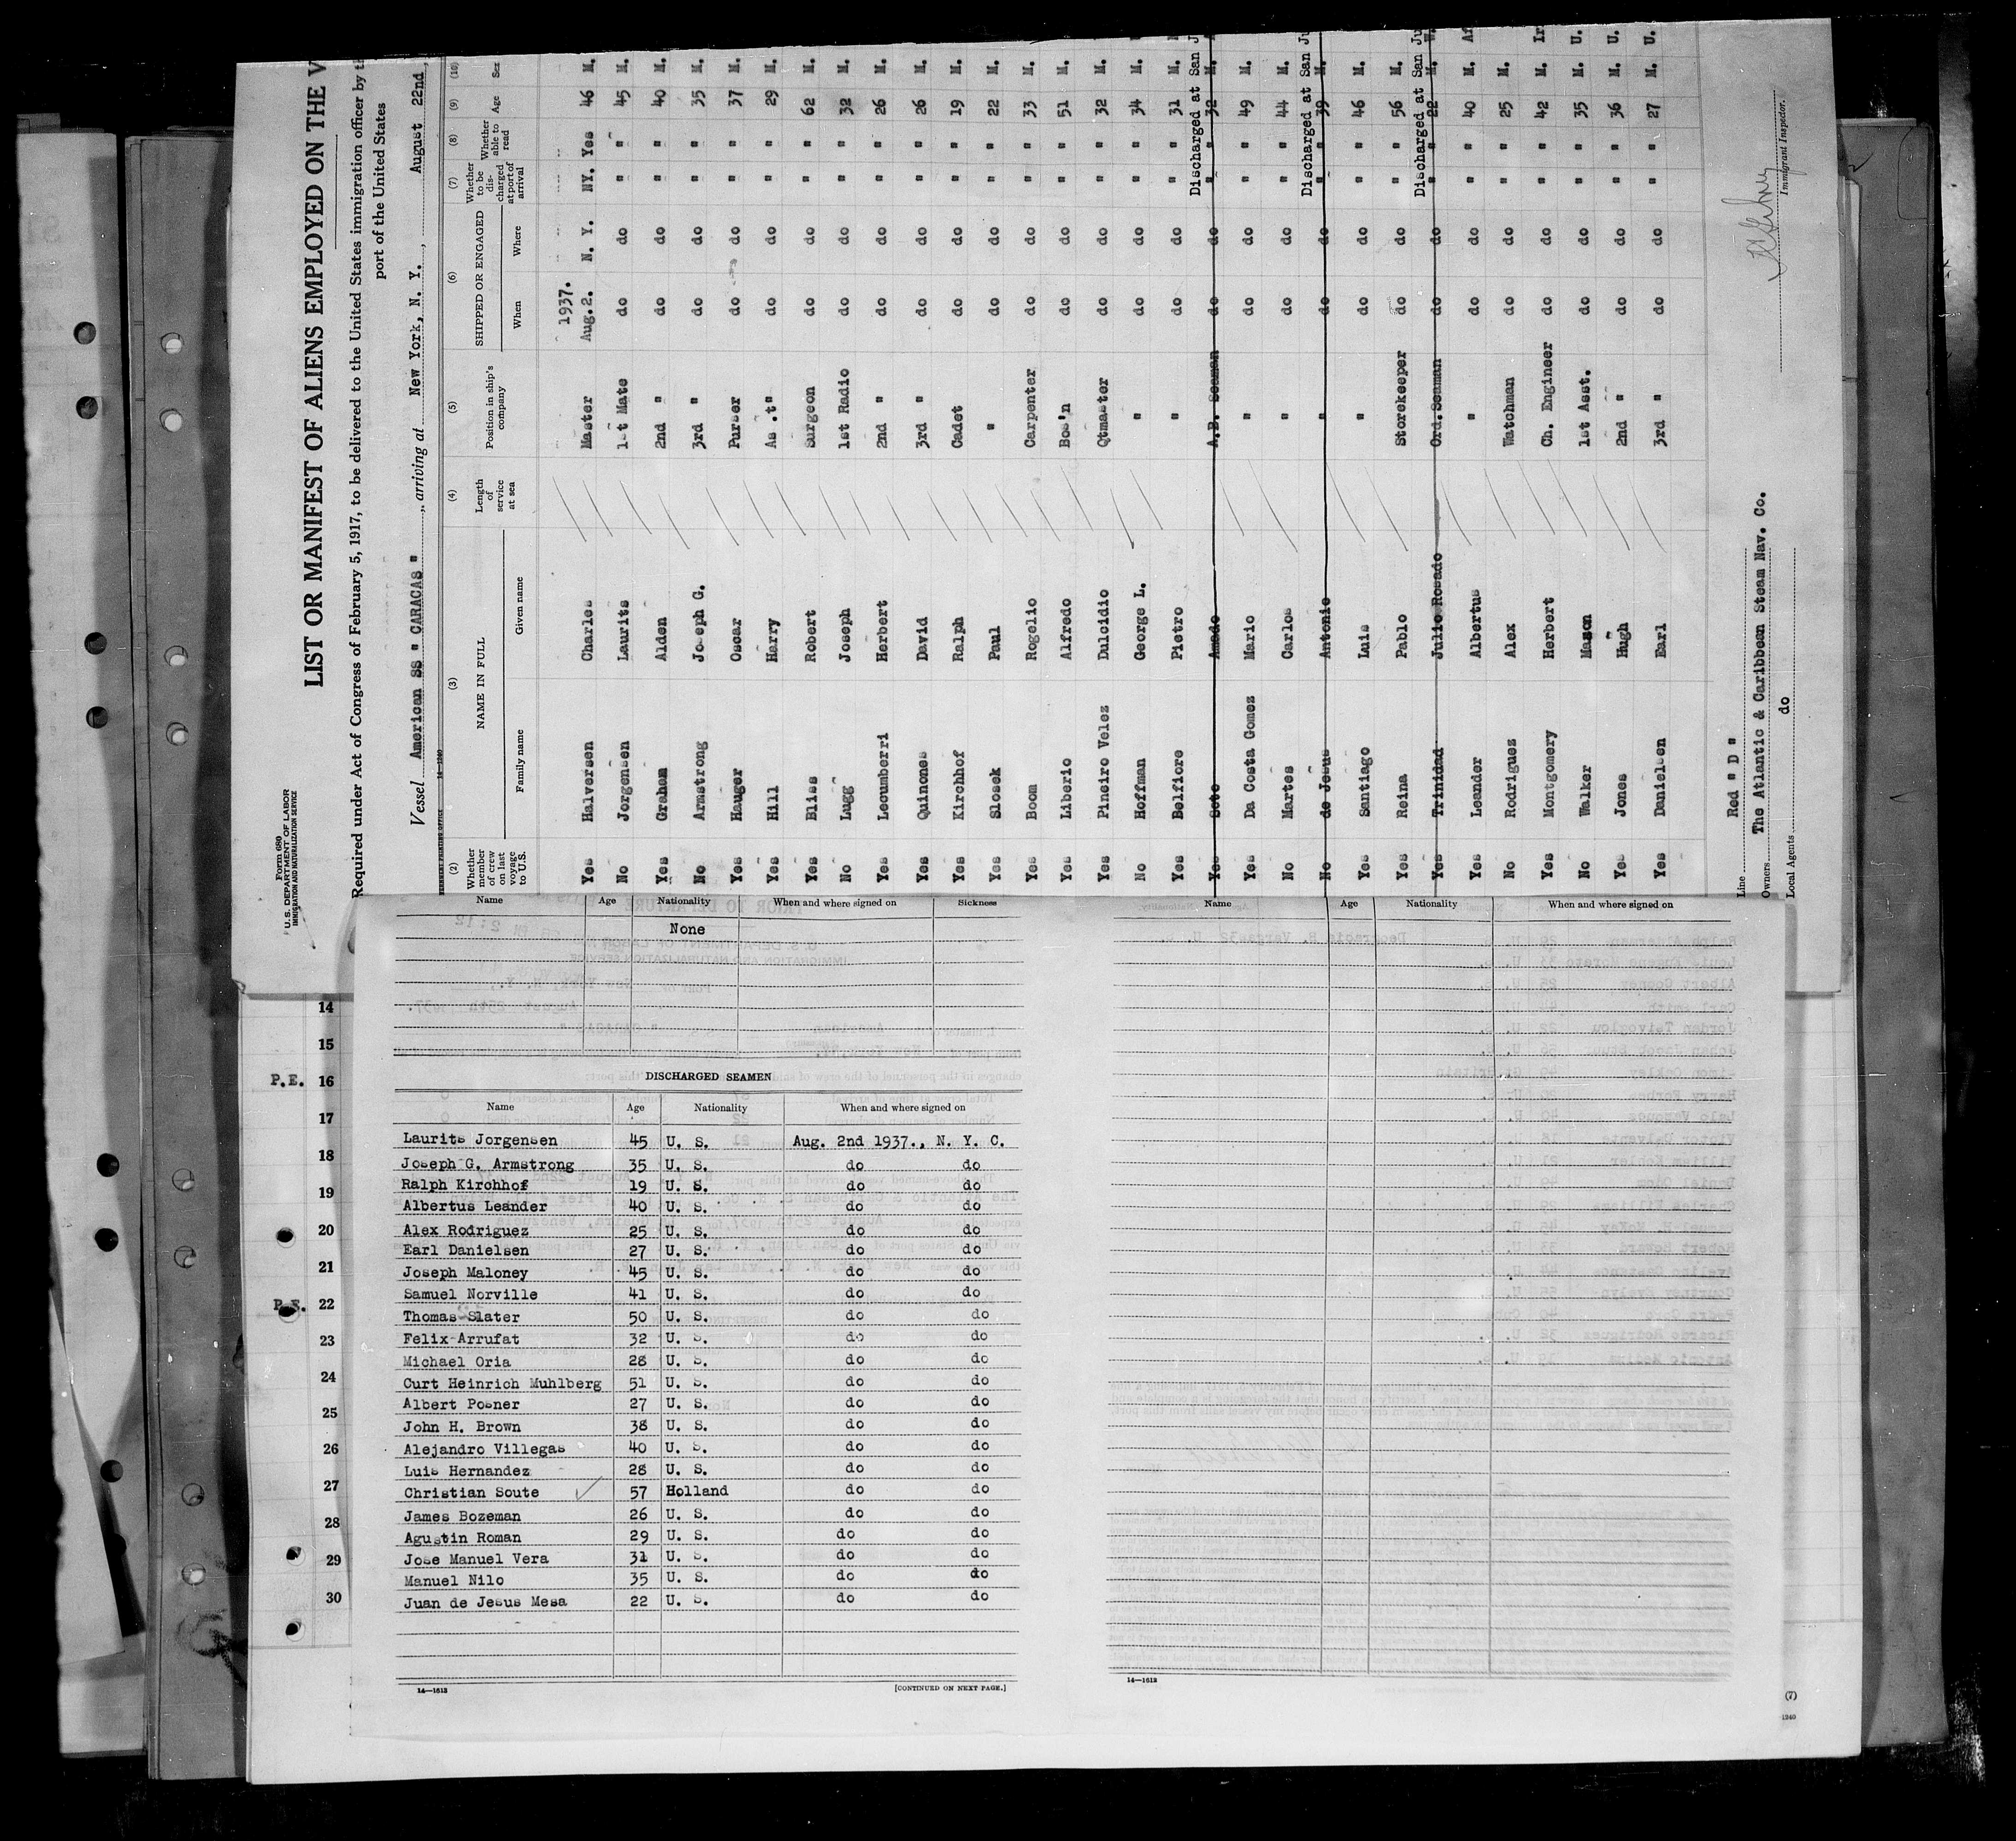 Form 680
U. S. DEPARTMENT OF LABOR
IMMIGRATION AND NATURALIZATION SERVICE
LIST OR MANIFEST OF ALIENS EMPLOYED ON THE V
Required under Act of Congress of February 5, 1917, to be delivered to the United States immigration officer by th
port of the United States
Vessel American SS " CARACAS ", arriving at New York, N. Y., August 22nd,
(2) (3) (4) (5) (6) (7) (8) (9) (10)
Whether member of crew on last voyage to U.S. NAME IN FULL Family name Given name Length of service at sea Position in ship's company SHIPPED OR ENGAGED When Where Whether to be discharged at port of arrival Whether able to read Age Sex
1937.
Yes Halversen Charles Master Aug. 2. N. Y. NY. Yes 46 M.
No Jorgensen Laurits 1st Mate do do " " 45 M.
Yes Graham Alden 2nd " do do " " 40 M.
No Armstrong Joseph G. 3rd " do do " " 35 M.
Yes Hauger Oscar Purser do do " " 37 M.
Yes Hill Harry As .t" do do " " 29 M.
Yes Bliss Robert Surgeon do do " " 62 M.
No Lugg Joseph 1st Radio do do " " 32 M.
Yes Lecumberri Herbert 2nd " do do " " 26 M.
Yes Quinones David 3rd " do do " " 26 M.
Yes Kirchhof Ralph Cadet do do " " 19 M.
Yes Slosek Paul " do do " " 22 M.
Yes Boom Rogelio Carpenter do do " " 33 M.
Yes Liberio Alfredo Bos'n do do " " 51 M.
Yes Pineiro Velez Dulcidio Qtmaster do do " " 32 M.
No Hoffman George L. " do do " " 34 M.
Yes Belfiore Pietro " do do " " 31 M.
Discharged at San J
Yes Soto Amado A.B. Seaman do do " " 32 M.
Yes Da Costa Gomez Mario " do do " " 49 M.
No Martes Carlos " do do " " 44 M.
Discharged at San Ju
No de Jesus Antonio " do do " " 39 M.
Yes Santiago Luis " do do " " 46 M.
Yes Reina Pablo Storekeeper do do " " 56 M.
Discharged at San Ju
Yes Trinidad Julio Rosado Ord.Seaman do do " " 22 M.
Yes Leander Albertus " do do " " 40 M. Af
No Rodriguez Alex Watchman do do " " 25 M.
Yes Montgomery Herbert Ch. Engineer do do " " 42 M. Ir
No Walker Mason 1st Asst. do do " " 35 M. U.
Yes Jones Hugh 2nd " do do " " 36 M. U.
Yes Danielsen Earl 3rd " do do " " 27 M. U.
Line Red " D "
Owners The Atlantic & Caribbean Steam Nav. Co.
Local Agents do
Immigrant Inspector.
Name Age Nationality When and where signed on Sickness
None
DISCHARGED SEAMEN
Name Age Nationality When and where signed on
Laurits Jorgensen 45 U. S. Aug. 2nd 1937., N. Y. C.
Joseph G. Armstrong 35 U. S. do do
Ralph Kirchhof 19 U. S. do do
Albertus Leander 40 U. S. do do
Alex Rodriguez 25 U. S. do do
Earl Danielsen 27 U. S. do do
Joseph Maloney 45 U. S. do do
Samuel Norville 41 U. S. do do
Thomas Slater 50 U. S. do do
Felix Arrufat 32 U. S. do do
Michael Oria 28 U. S. do do
Curt Heinrich Muhlberg 51 U. S. do do
Albert Posner 27 U. S. do do
John H. Brown 38 U. S. do do
Alejandro Villegas 40 U. S. do do
Luis Hernandez 28 U. S. do do
Christian Soute 57 Holland do do
James Bozeman 26 U. S. do do
Agustin Roman 29 U. S. do do
Jose Manuel Vera 31 U. S. do do
Manuel Nilo 35 U. S. do do
Juan de Jesus Mesa 22 U. S. do do
14—1613 [CONTINUED ON NEXT PAGE.]
Name Age Nationality When and where signed on
14—1613
14
15
P.E. 16
17
18
19
20
21
P.E. 22
23
24
25
26
27
28
29
30
1240